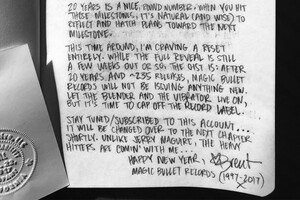 20 YEARS IS A NICE, ROUND NUMBER. WHEN YOU HIT
THOSE MILESTONES, IT'S NATURAL (AND WISE) TO
REFLECT AND HATCH PLANS TOWARD THE NEXT
MILESTONE.
THIS TIME AROUND, I'M CRAVING A RESET
ENTIRELY. WHILE THE FULL REVEAL IS STILL
A FEW WEEKS OUT OR SO, THE GIST IS: AFTER
20 YEARS AND ~235 RELEASES, MAGIC BULLET
RECORDS WILL NOT BE ISSUING ANYTHING NEW.
LET THE BLENDER AND THE VIBRATOR LIVE ON,
BUT IT'S TIME TO CAP OFF THE RECORD LABEL.
STAY TUNED/SUBSCRIBED TO THIS ACCOUNT...
IT WILL BE CHANGED OVER TO THE NEXT CHAPTER
SHORTLY. UNLIKE JERRY MAGUIRE, THE HEAVY
HITTERS ARE COMIN' WITH ME....
HAPPY NEW YEAR, Brent
MAGIC BULLET RECORDS (1997-2017)